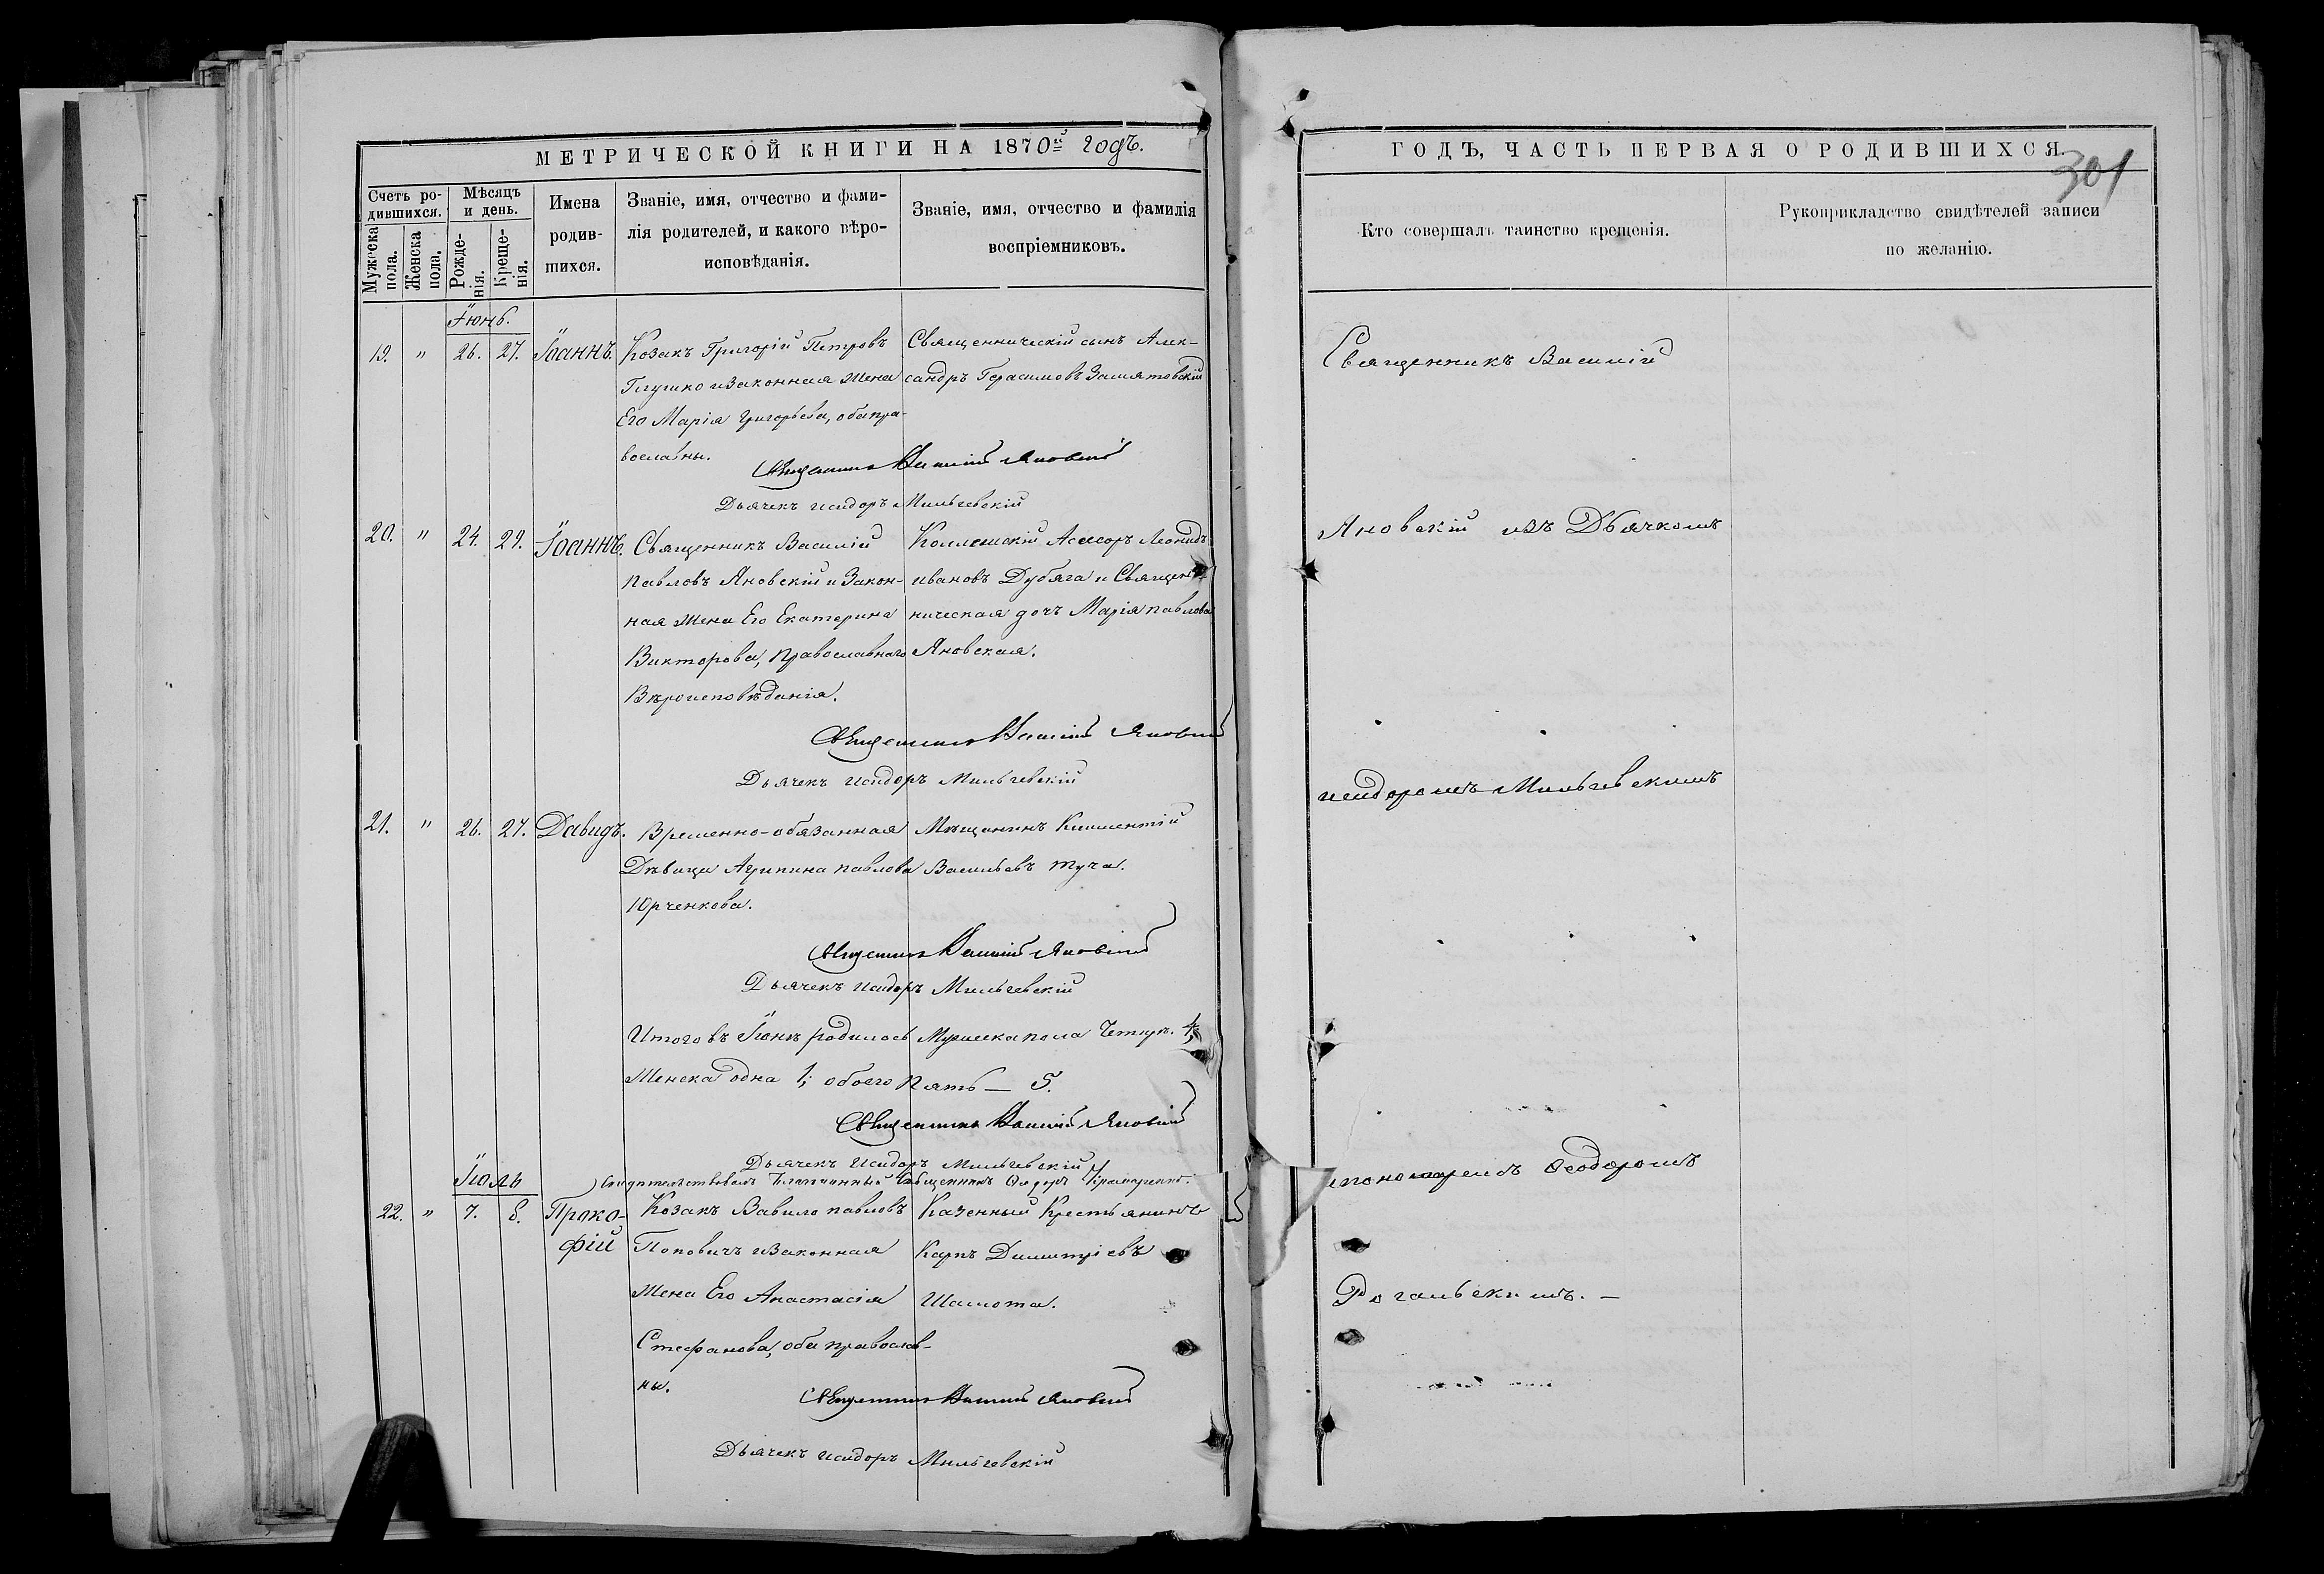 МЕТРИЧЕСКОЙ КНИГИ НА 1870й годъ.
Счетъ ро-
дившихся.
Мѣсяцъ
и день.
Мужеска
пола.
Женска
пола.
Рожде-
нія.
Креще-
нія.
Имена
родив-
шихся.
Званіе, имя, отчество и фами-
лія родителей, и какого вѣро-
исповѣданія.
Званіе, имя, отчество и фамилія
воспріемниковъ.
Іюнь.
19. " 26. 27. Іоаннъ. Козакъ Григорій Петровъ Священническій сынъ Алек-
Глушко и законная жена сандръ Герасимовъ
Его Марія Григорьева, оба пра-
вославны.
Священникъ Василій Яновскій
Дьячекъ Исидоръ Мильчевскій
20. " 24. 29. Іоаннъ. Священникъ Василій Асесоръ Леонидъ
Павловъ Яновскій и Закон- Ивановъ Дубяга и Священ-
ная жена Его Екатерина ническая дочь Марія Павлова
Викторова, Православнаго Яновская.
Вѣроисповѣданія.
Священникъ Василій Яновскій
Дьячекъ Исидоръ Мильчевскій
21. " 26. 27. Давидъ. Временно-обязанная Мѣщанинъ Климентій
Дѣвица Агрипина Павлова Васильевъ Туча.
Юрченкова.
Священникъ Василій Яновскій
Дьячекъ Исидоръ Мильчевскій
Итого въ Іюнѣ родилось Мужеска пола Четыре. 4,
Женска одна 1; обоего Пять — 5.
Священникъ Василій Яновскій
Дьячекъ Исидоръ Мильчевскій
Іюль
Свидѣтельствовалъ Благочинный Священникъ
22. " 7. 8. Проко- Козакъ Вавило Павловъ Казенный Крестьянинъ
фій Поповичъ и законная Карпъ Димитріевъ
Жена Его Анастасія Шамота.
Стефанова, оба православ-
ны.
Священникъ Василій Яновскій
Дьячекъ Исидоръ Мильчевскій
ГОДЪ, ЧАСТЬ ПЕРВАЯ О РОДИВШИХСЯ.
301
Кто совершалъ таинство крещенія.
Рукоприкладство свидѣтелей записи
по желанію.
Священникъ Василій
Яновскій изъ Дьячкомъ
Исидоромъ Мильчевскимъ
и пономаремъ Ѳеодоромъ
Рогальскимъ. —